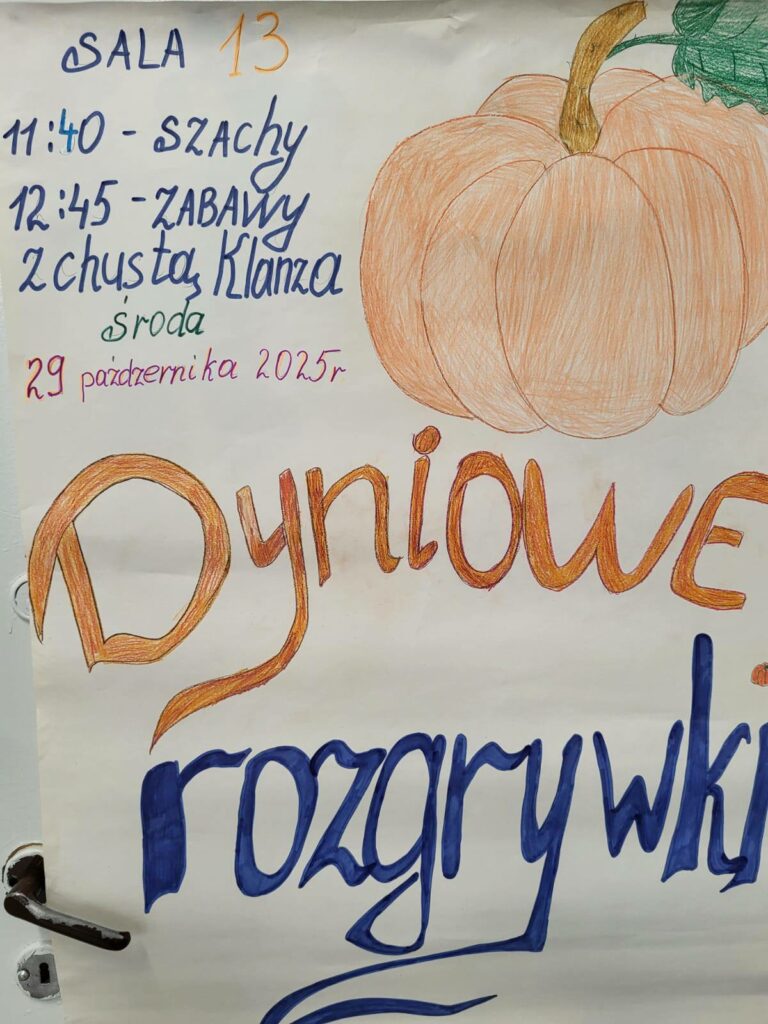 SALA 13
11:40 - SZACHY
12:45 - ZABAWY
z chustą Klanza
środa
29 października 2025r
Dyniowe
rozgrywki